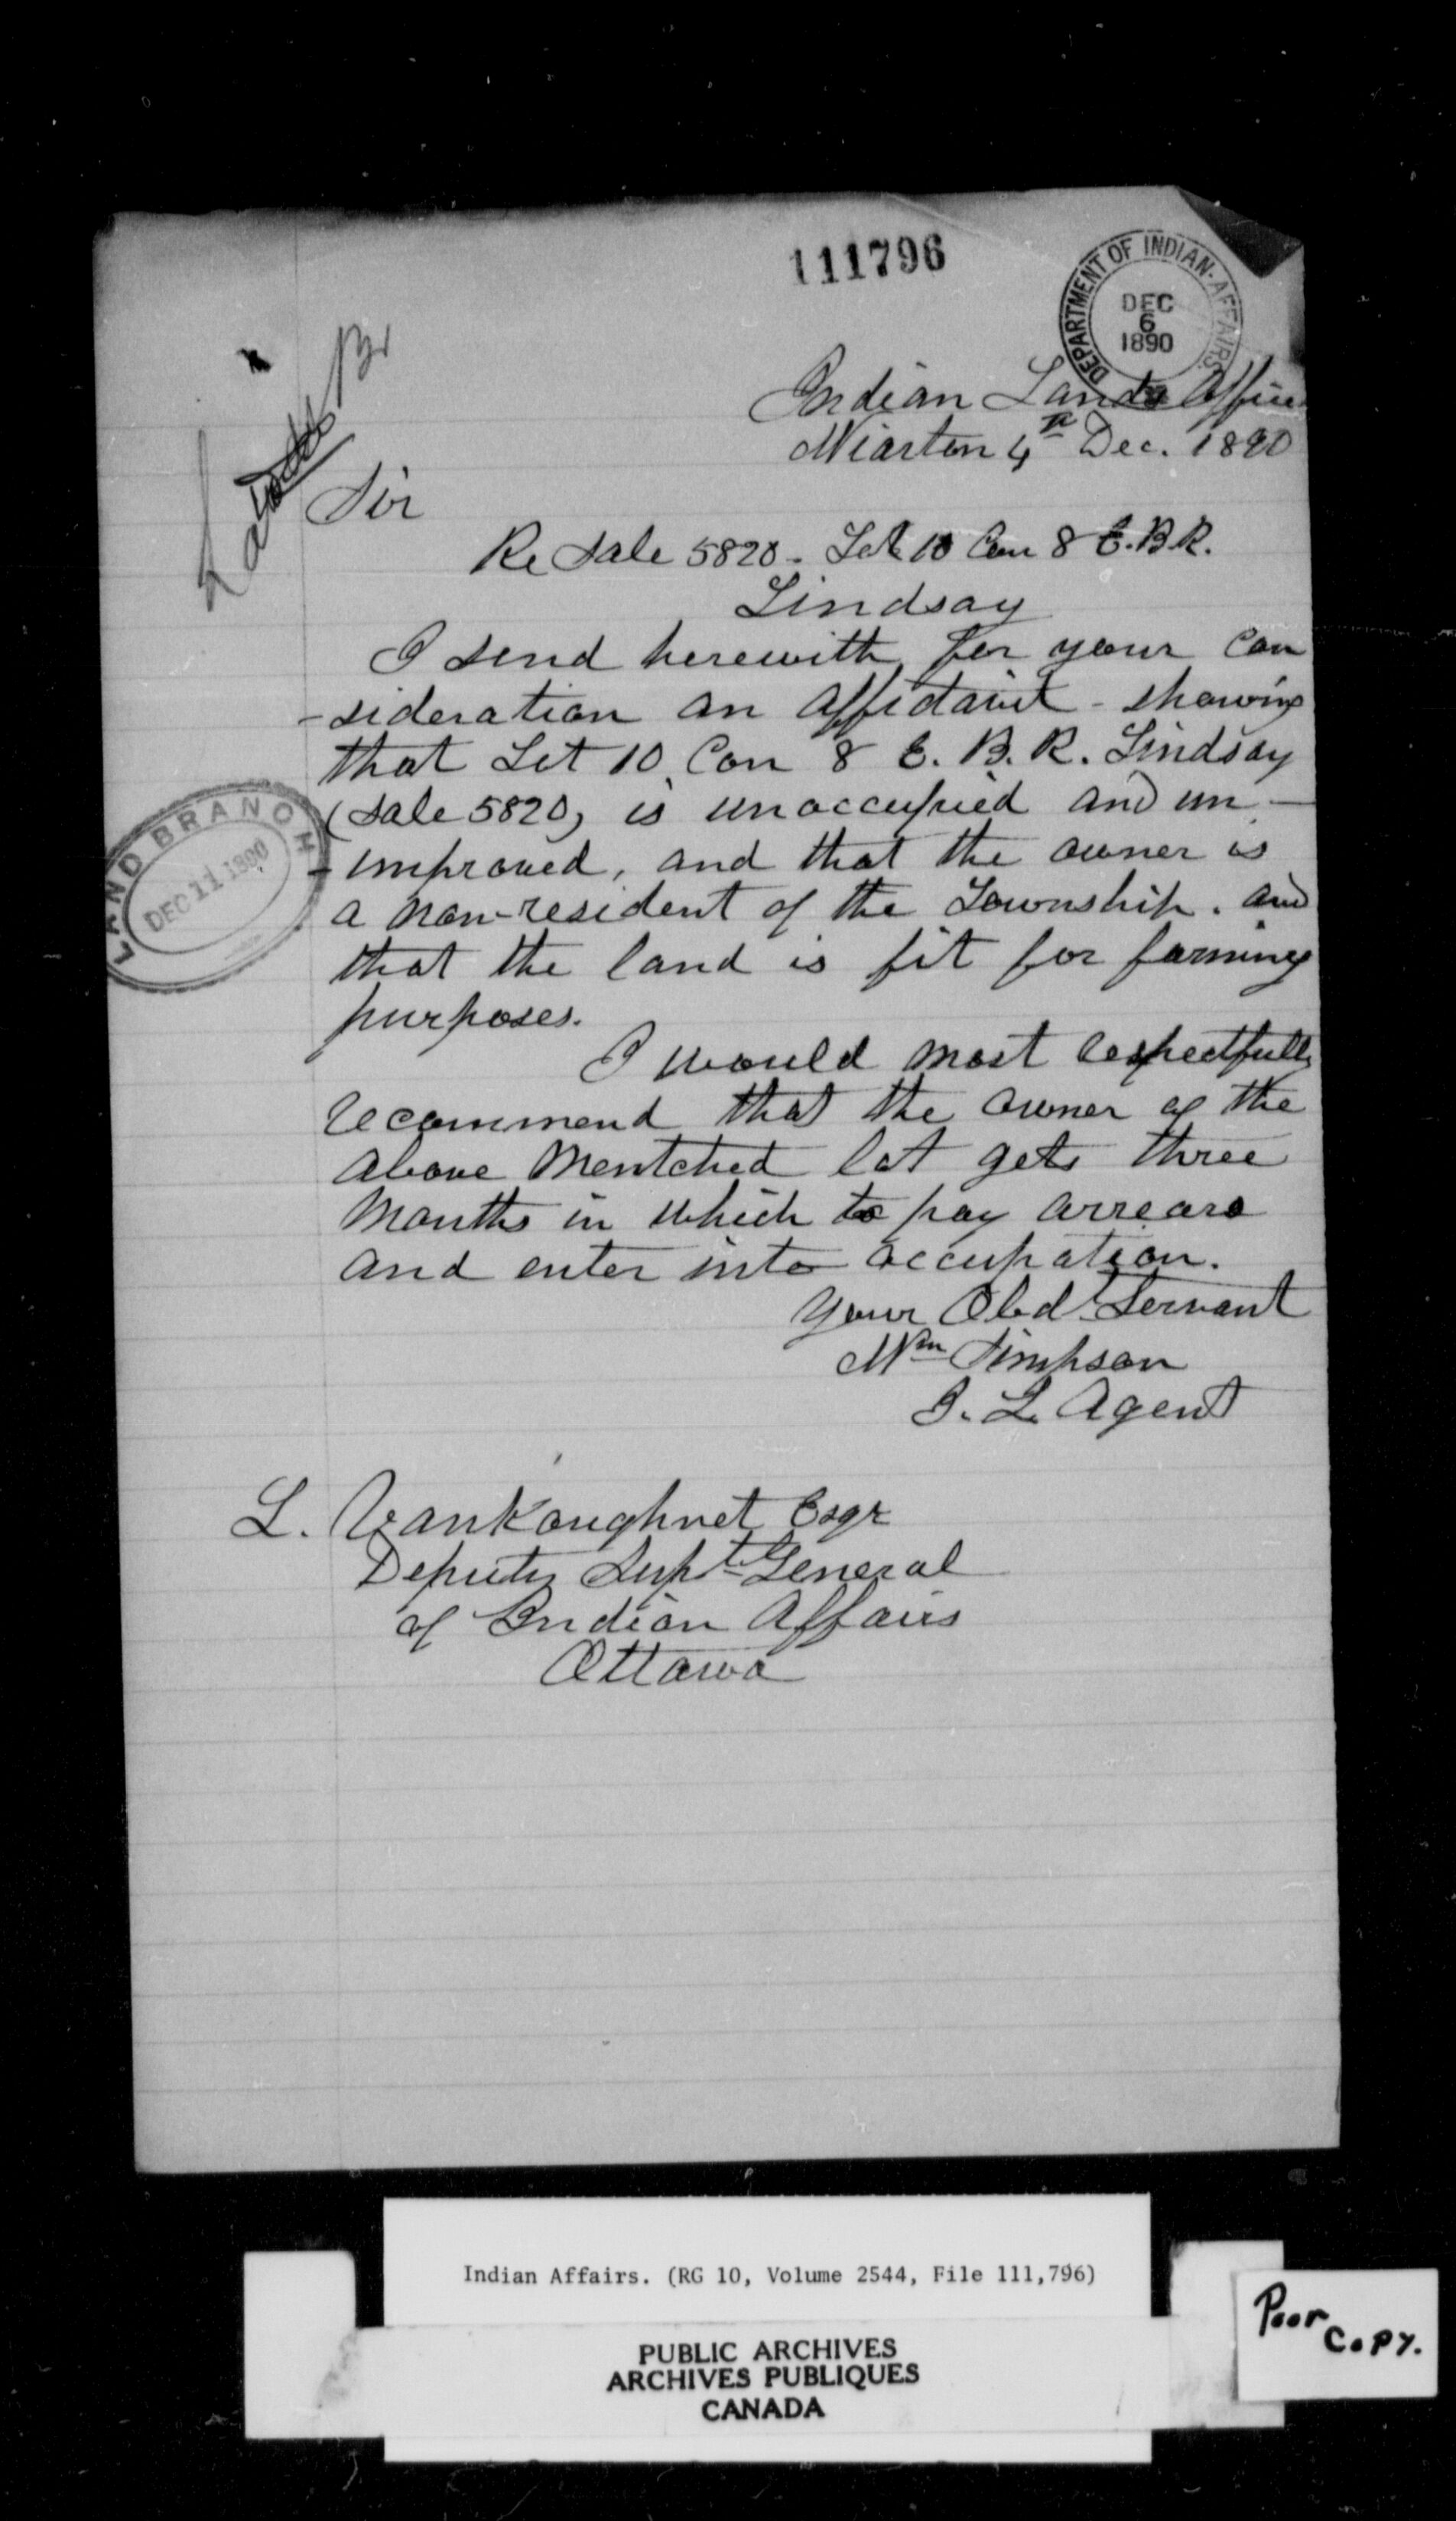 111796
DEPARTMENT OF INDIAN-AFFAIRS.
DEC
6
1890
Lands Br
Indian Lands Office
Wiarton 4th Dec. 1890
Sir
Re Sale 5820 - Lot 10 Con 8 E.B.R.
Lindsay
I send herewith for your con
-sideration an affidavit - showing
that Lot 10 Con 8 E. B. R. Lindsay
(Sale 5820) is unoccupied and un-
-improved, and that the owner is
a non-resident of the Township. and
that the land is fit for farming
purposes.
LAND BRANCH
DEC 11 1890
I would most respectfully
recommend that the owner of the
above mentched lot gets three
months in which to pay arrears
and enter into occupation.
Your Obdt Servant
Wm Simpson
I. L. Agent
L. Vankoughnet Esqr
Deputy Supt General
of Indian Affairs
Ottawa
Indian Affairs. (RG 10, Volume 2544, File 111,796)
PUBLIC ARCHIVES
ARCHIVES PUBLIQUES
CANADA
Poor
Copy.